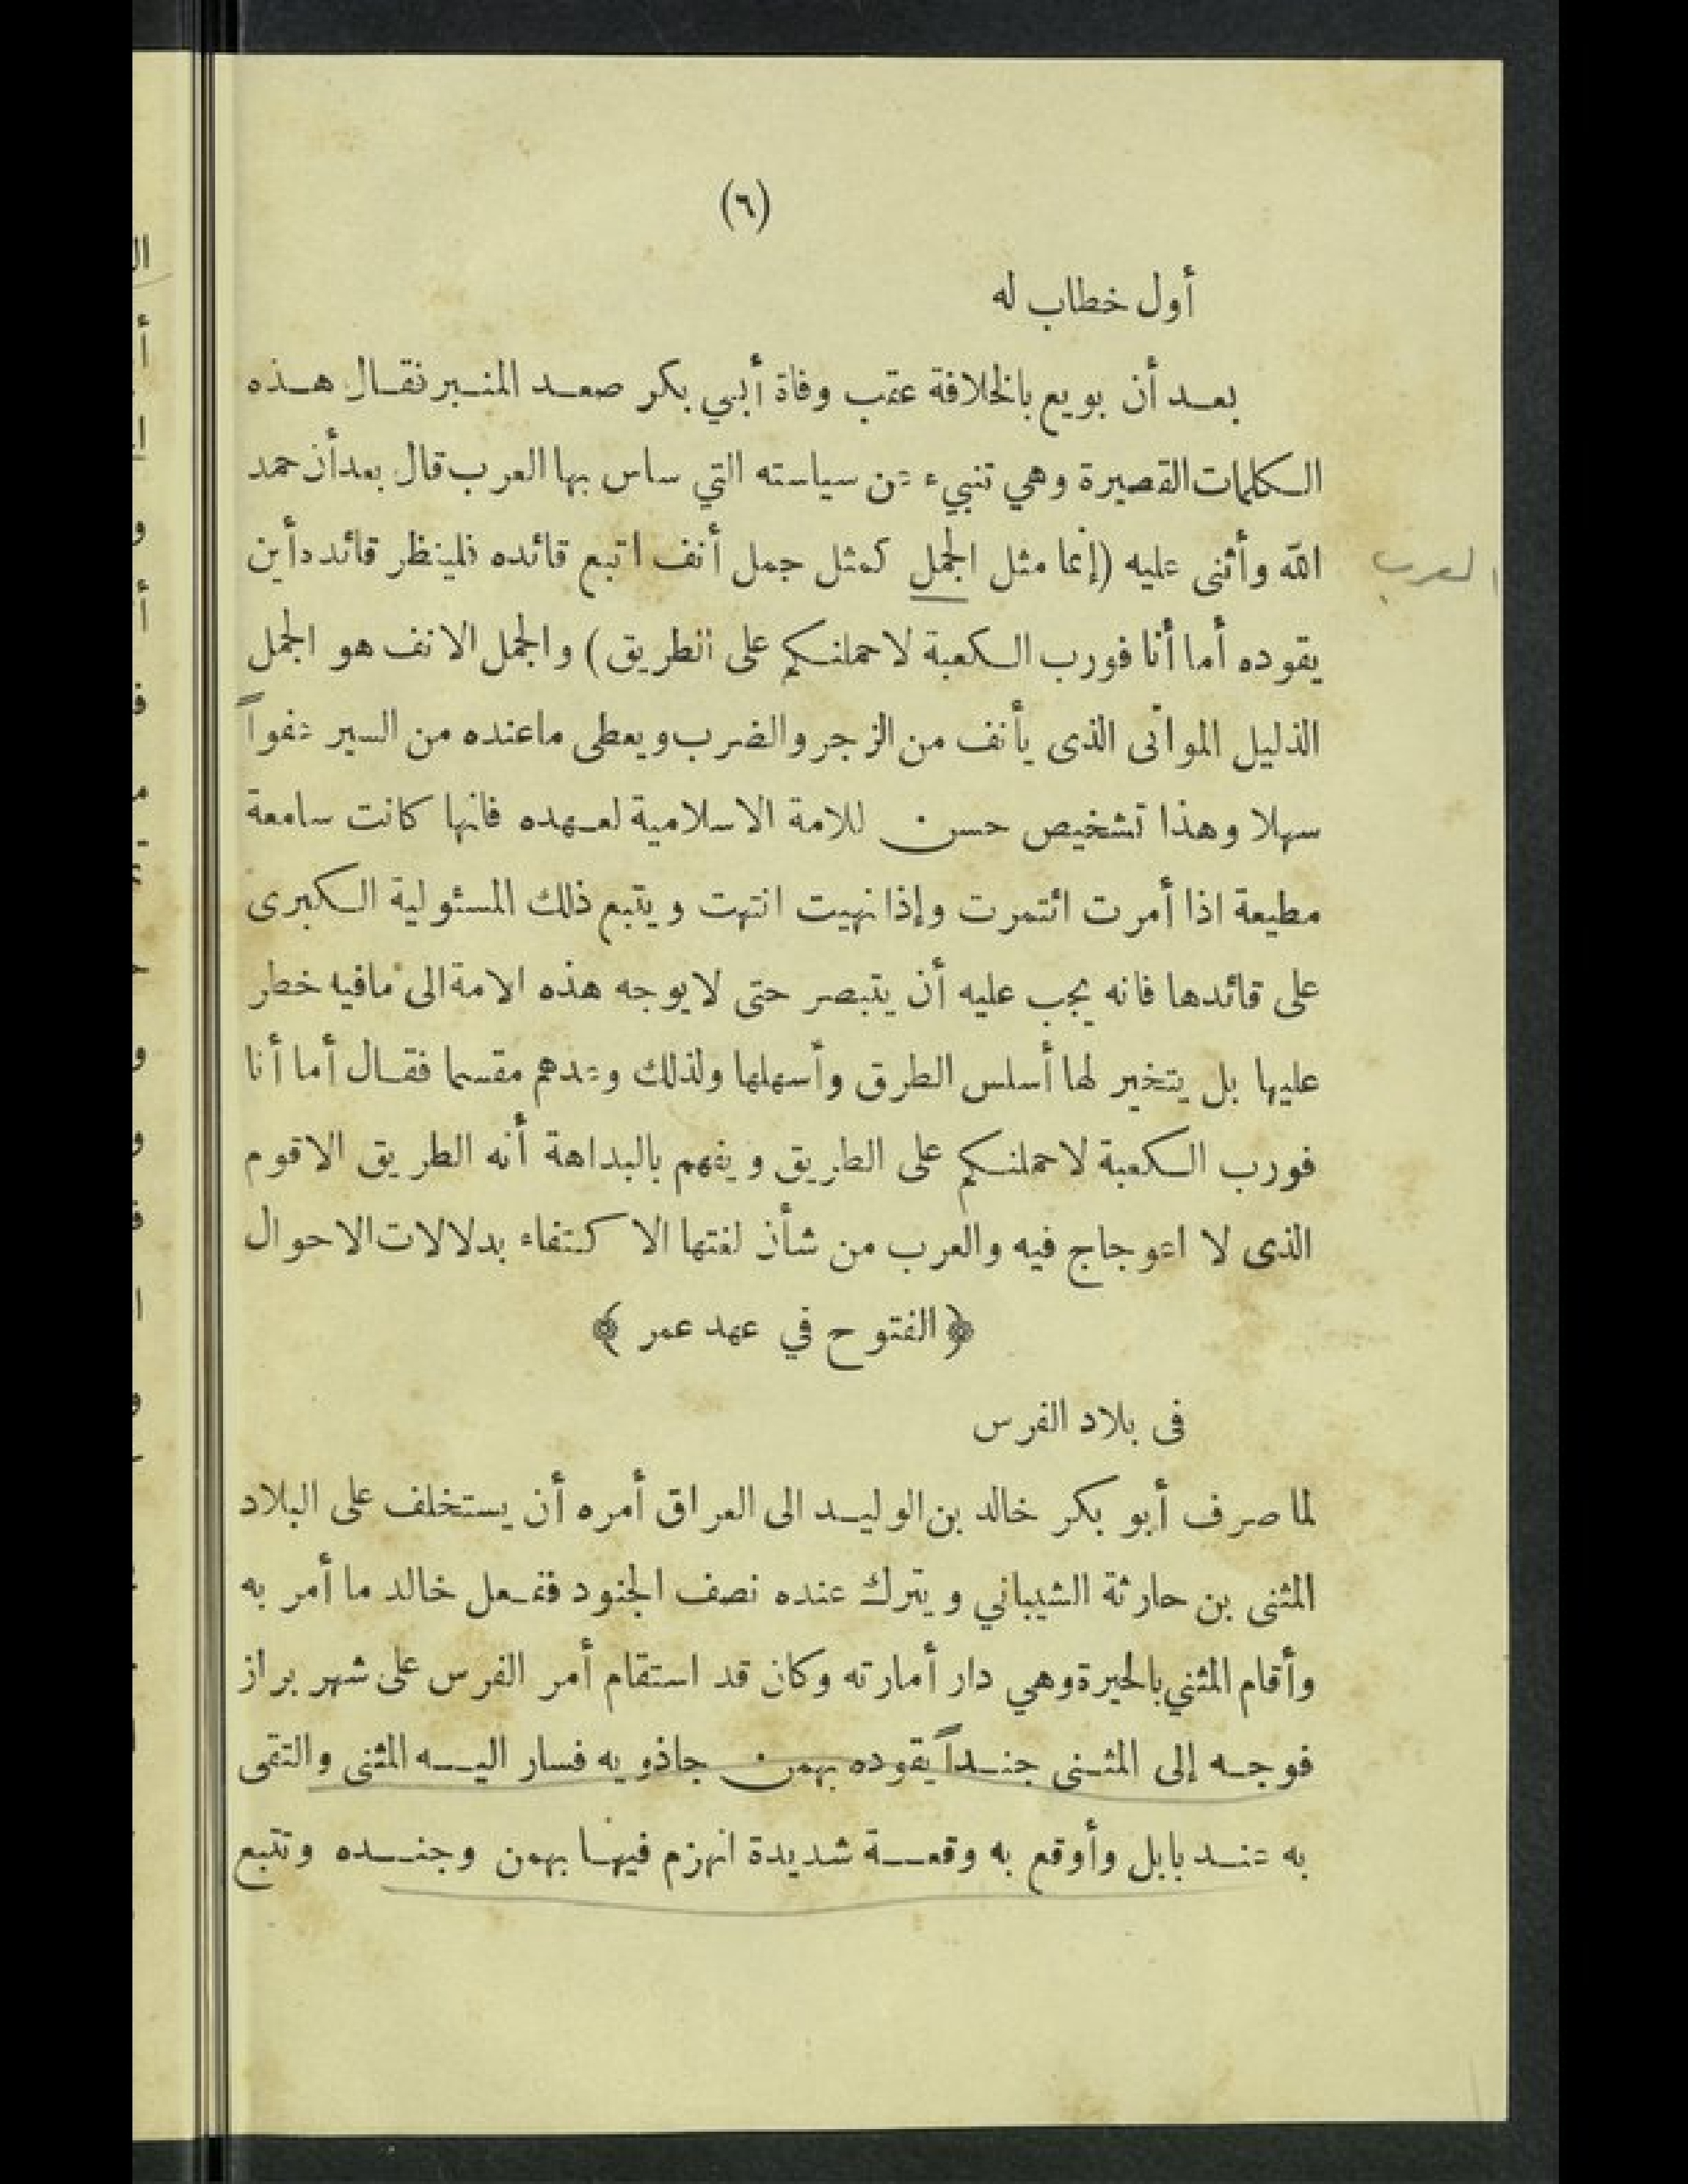 (٦)
أول خطاب له
بعد أن بويع بالخلافة عقب وفاة أبي بكر صعد المنبر فقال هذه
الكلمات القصيرة وهي تنبيء عن سياسته التي ساس بها العرب قال بعد أن حمد
الله وأثنى عليه (إنما مثل الجمل كمثل جمل أنف اتبع قائده فلينظر قائده أين
العرب
يقوده أما أنا فورب الكعبة لاحملنكم على الطريق) والجمل الانف هو الجمل
الذليل المواتى الذى يأنف من الزجر والضرب ويعطى ما عنده من السير عفواً
سهلا وهذا تشخيص حسن للامة الاسلامية لعهده فانها كانت سامعة
مطيعة اذا أمرت ائتمرت وإذا نهيت انتهت ويتبع ذلك المسئولية الكبرى
على قائدها فانه يجب عليه أن يتبصر حتى لا يوجه هذه الامة الى ما فيه خطر
عليها بل يتخير لها أسلس الطرق وأسهلها ولذلك وعدهم مقسما فقال أما أنا
فورب الكعبة لاحملنكم على الطريق ويفهم بالبداهة أنه الطريق الاقوم
الذى لا اعوجاج فيه والعرب من شأن لغتها الاكتفاء بدلالات الاحوال
﴿ الفتوح في عهد عمر ﴾
فى بلاد الفرس
لما صرف أبو بكر خالد بن الوليد الى العراق أمره أن يستخلف على البلاد
المثنى بن حارثة الشيباني ويترك عنده نصف الجنود ففعل خالد ما أمر به
وأقام المثني بالحيرة وهي دار أمارته وكان قد استقام أمر الفرس على شهر براز
فوجه إلى المثنى جنداً يقوده بهمن جاذويه فسار اليه المثنى والتقى
به عند بابل وأوقع به وقعة شديدة انهزم فيها بهمن وجنده وتتبع